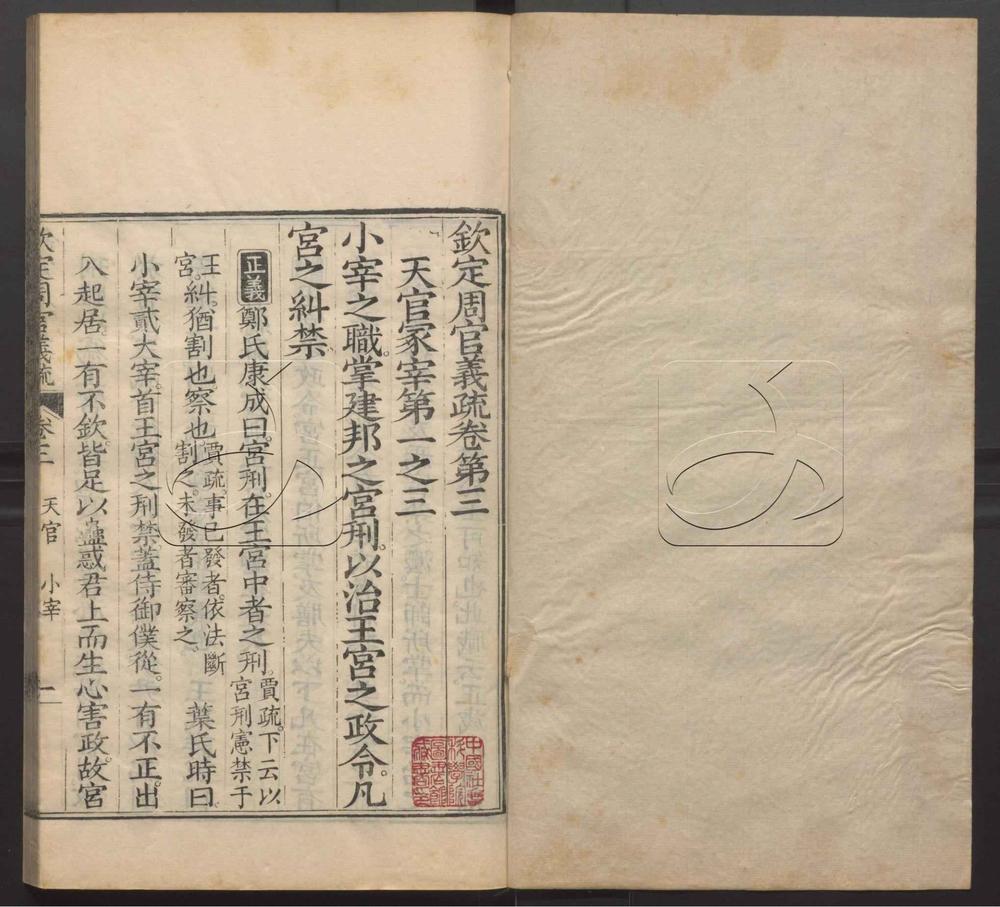 欽定周官義疏卷第三
天官冢宰第一之三
小宰之職掌建邦之宮刑。以治王宮之政令。凡
宮之糾禁
正義鄭氏康成曰。宮刑。在王宮中者之刑。賈疏。下云以宮刑憲禁于
王宮。糾。猶割也察也賈疏。事已發者。依法斷割之。未發者審察之。王葉氏時曰
小宰貳大宰。首王宮之刑禁蓋侍御僕從。一有不正。出
入起居一有不欽。皆足以蠱惑君上而生心害政。故宮
欽定周官義疏 卷三 天官 小宰 一